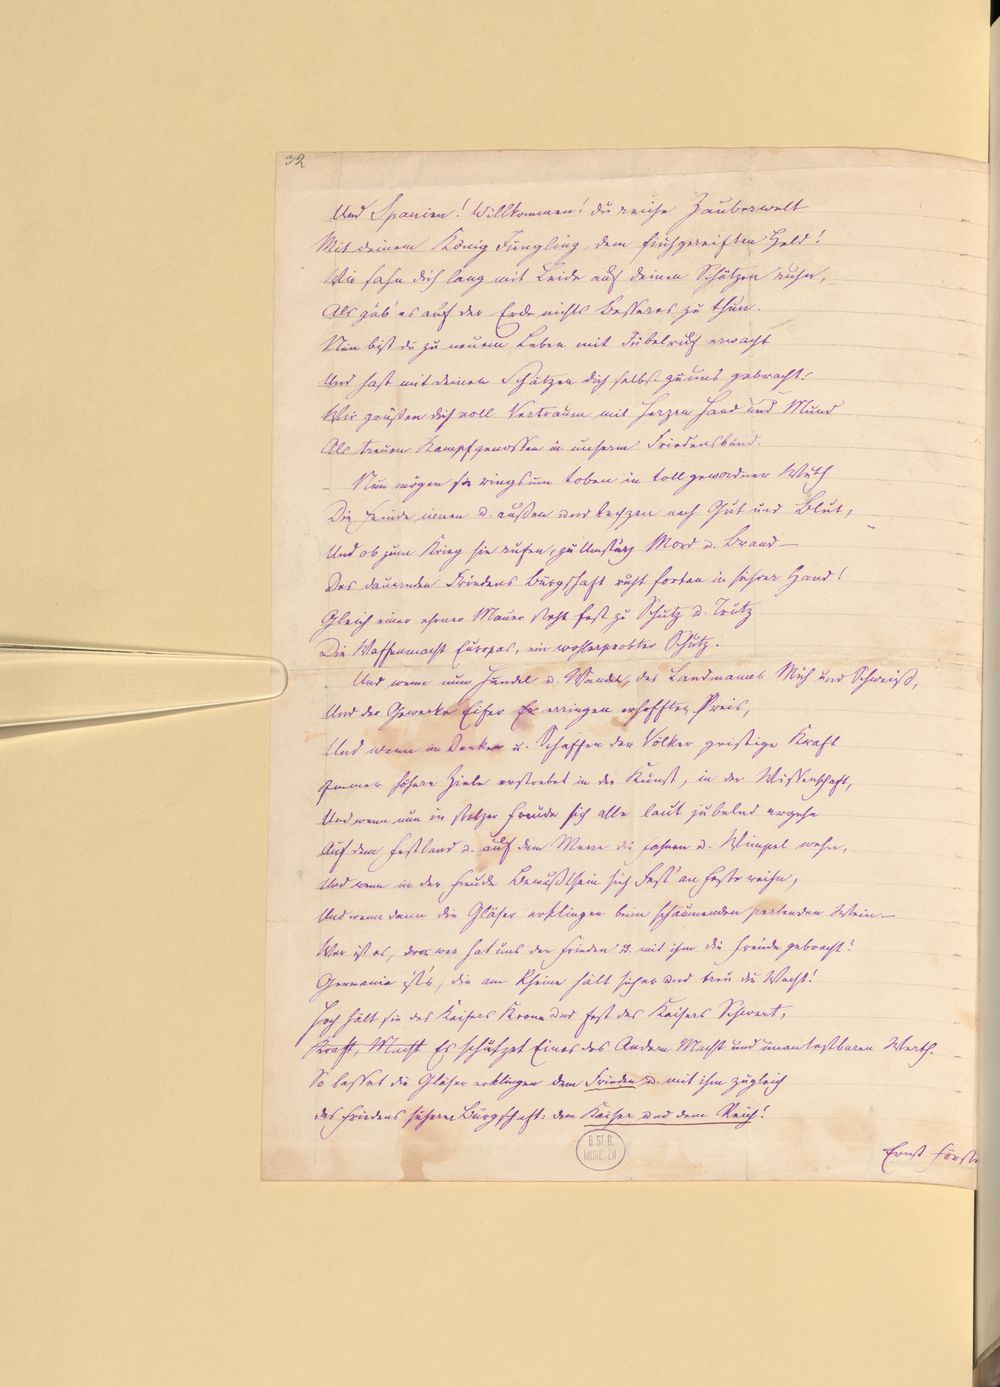 32
Und Spanien! Willkommen! du reiche Zauberwelt
Mit deinem König Jüngling, dem frühgereiften Held!
Wir sahn dich lang mit Leide auf deinen Schätzen ruhn,
Als gäb' es auf der Erde nichts Besseres zu thun.
Nun bist du zu neuem Leben mit Jubelruf erwacht
Und hast mit deinen Schätzen dich selbst zu uns gebracht:
Wir grüßen dich voll Vertraun mit Herzen Hand und Mund
Als treuen Kampfgenossen in unserm Friedensbund.
Nun mögen sie ringsum toben in tollgewordner Wuth
Die Feinde innen u. außen und lechzen nach Gut und Blut,
Und ob zum Krieg sie rufen, zu Umsturz Mord u. Brand—
Des dauernden Friedens Bürgschaft ruht fortan in sichrer Hand!
Gleich einer ehrnen Mauer steht fest zu Schutz u. Trutz
Die Waffenmacht Europas, ein wohlerprobter Schutz.
Und wenn nun Handel u. Wandel, des Landmanns Müh und Schweiß,
Und der Gewerke Eifer erringen erhofften Preis,
Und wenn in Denken u. Schaffen der Völker geistige Kraft
Immer höhere Ziele erstrebet in der Kunst, in der Wissenschaft,
Und wenn nun in stolzer Freude sich alle laut jubelnd ergehn
Auf dem Festland u. auf dem Meere die Fahnen u. Wimpel wehn,
Und wenn in der Freude Bewußtsein sich Fest an Feste reihn,
Und wenn dann die Gläser erklingen beim schäumenden perlenden Wein—
Wer ist es, wer hat uns den Frieden u. mit ihm die Freude gebracht?
Germania ist's, die am Rheine hält sicher und treu die Wacht!
Hoch hält sie des Kaisers Krone und fest des Kaisers Schwert,
Kraft, Macht Es schützet Eines des Andern Macht und unantastbaren Werth.
So lasset die Gläser erklingen dem Frieden u. mit ihm zugleich
des Friedens sicherer Bürgschaft: dem Kaiser und dem Reich!
Ernst
B. St. B.
MÜNCHEN